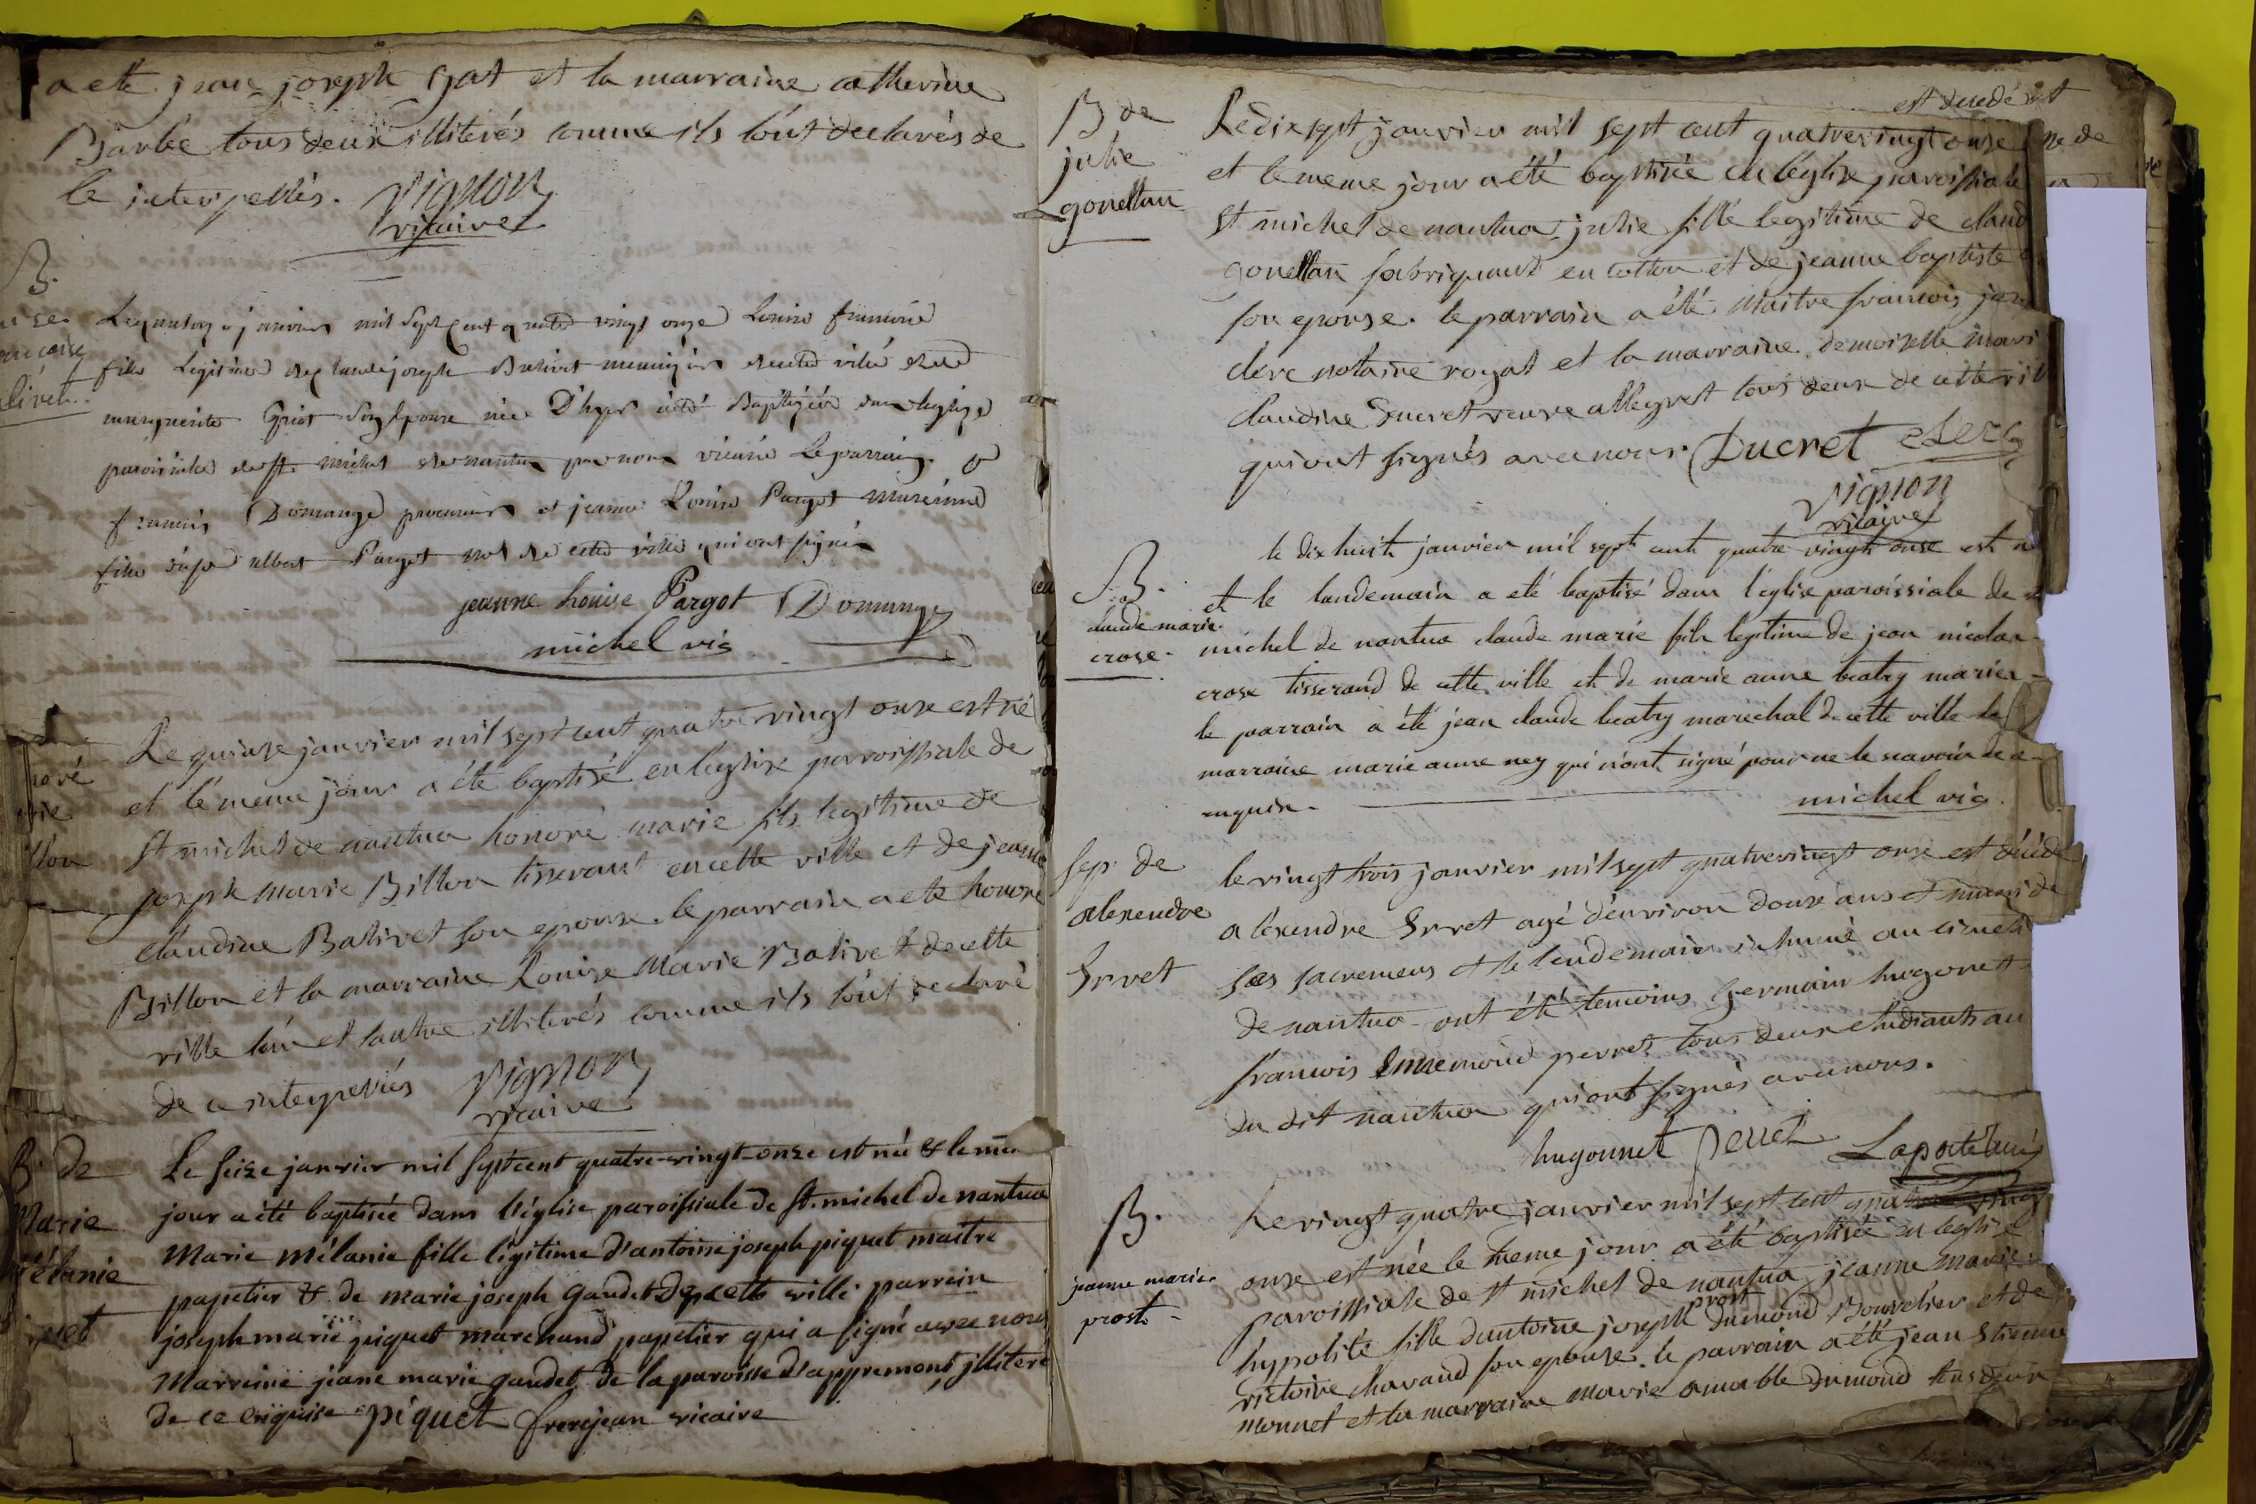 a ete jean joseph gat et la marraine catherine
Barbe tous deux illiterés comme ils l'ont declarés de
ce interpellés. Vignon
vicaire
B.
Le quatorze janvier mil sept cent quatre vingt onze Louise francoise
fille Legitime de claude joseph Balivet de cette ville et de
marguerite son epouse née D'hyer a été Baptizée dans leglize
paroissiale de st. michel de nantua par nous vicaire Le parrain
francois Domange procureur et jeanne Louise Pargot
fille Pargot de cette ville qui ont signé
jeanne Louise Pargot Domange
michel vic
Le quinze janvier mil sept cent quatre vingt onze est né
et le meme jour a été baptisé en leglise parroissiale de
st michel de nantua honoré marie fils legitime de
joseph marie Billon tisserant en cette ville et de jeanne
claudine Balivet son epouse. le parrain a ete honoré
Billon et la marraine Louise Marie Balivet de cette
ville l'un et l'autre illiterés comme ils l'ont declaré
de ce interpellés Vignon
vicaire
B. de
Marie
Mélanie
Le seize janvier mil sept cent quatre-vingt-onze est née & le même
jour a été baptisée dans l'église paroissiale de St. michel de nantua
Marie Mélanie fille légitime d'antoine joseph piquet maître
papetier & de marie joseph gaudet de cette ville parrein
joseph marie piquet marchand papetier qui a signé avec nous
Marreine jeane marie gaudet de la paroisse d'appremont, jlliteré
de ce enquise piquet frerejean vicaire
B de
julie
gonettan
est decedé
Le dix sept janvier mil sept cent quatrevingt onze
et le meme jour a été baptisée en l'église paroissiale
st michel de nantua julie fille legitime de claud
gonettan fabriquant en cotton et de jeanne baptiste
son epouse. le parrain a été maitre francois
clerc notaire royal et la marraine demoiselle mari
claudine Ducret veuve allegret tous deux de cette vill
qui ont signés avec nous. Ducret clerc
Vignon
vicaire
B.
claude marie
croze.
le dix huit janvier mil sept cent quatre vingt onze est né
et le landemain a été baptisé dans l'église paroissiale de st
michel de nantua claude marie fils legitime de jean nicolas
croze tisserand de cette ville et de marie anne beatry mariés
le parrain a été jean claude beatry marechal de cette ville la
marraine marie anne ney qui n'ont signé pour ne le savoir de ce
enquis.
michel vic.
sep: de
alexendre
Serret
le vingt trois janvier mil sept quatrevingt onze est décédé
alexendre Serret agé d'environ douze ans et muni de
ses sacremens et le lendemain inhumé au cimeti
de nantua ont été temoins germain hugonet
francois Ennemond perret tous deux etudiants au
du dit nantua qui ont signés avec nous.
hugonnet perret Laporte curé
B.
jeanne marie
prost
Le vingt quatre janvier mil sept cent quatre vingt
onze est née le meme jour a été baptisée en leglise
paroissiale de st michel de nantua jeanne marie
hypolite fille dantoine joseph prost dumond Bourrelier et de
victoire chavand son epouse. le parrain a été jean Etienne
monnet et la marraine marie amable dumond tous deux